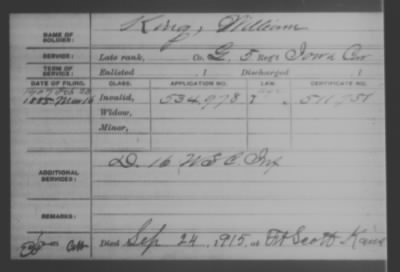 NAME OF SOLDIER: King, William
SERVICE: Late rank, Co. G, 5 Reg't Iowa Cav
TERM OF SERVICE: Enlisted , 1 Discharged , 1
DATE OF FILING. CLASS. APPLICATION NO. LAW. CERTIFICATE NO.
1907 Feb 20
1885 Mar 16 Invalid, 534,978
Widow,
Minor,
ADDITIONAL SERVICES: D. 16 U S C. Inf
REMARKS:
Died Sep 24, 1915, at Ft Scott Kans